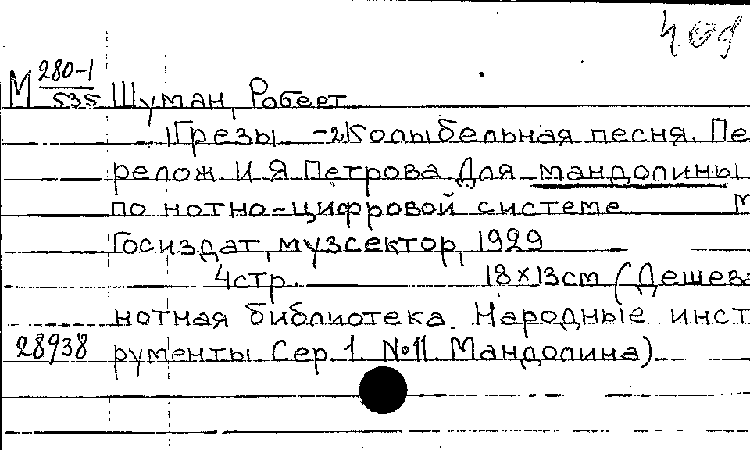 409
М 280-1/535 Шуман, Роберт
1Грезы -2Колыбельная песня. Пе
релож. И Я Петрова Для мандолины
по нотно-цифровой системе М
Госиздат, музсектор, 1929
4стр. 18×13см (Дешева
нотная библиотека. Народные инст
28938 рументы Сер. 1 №11 Мандолина)